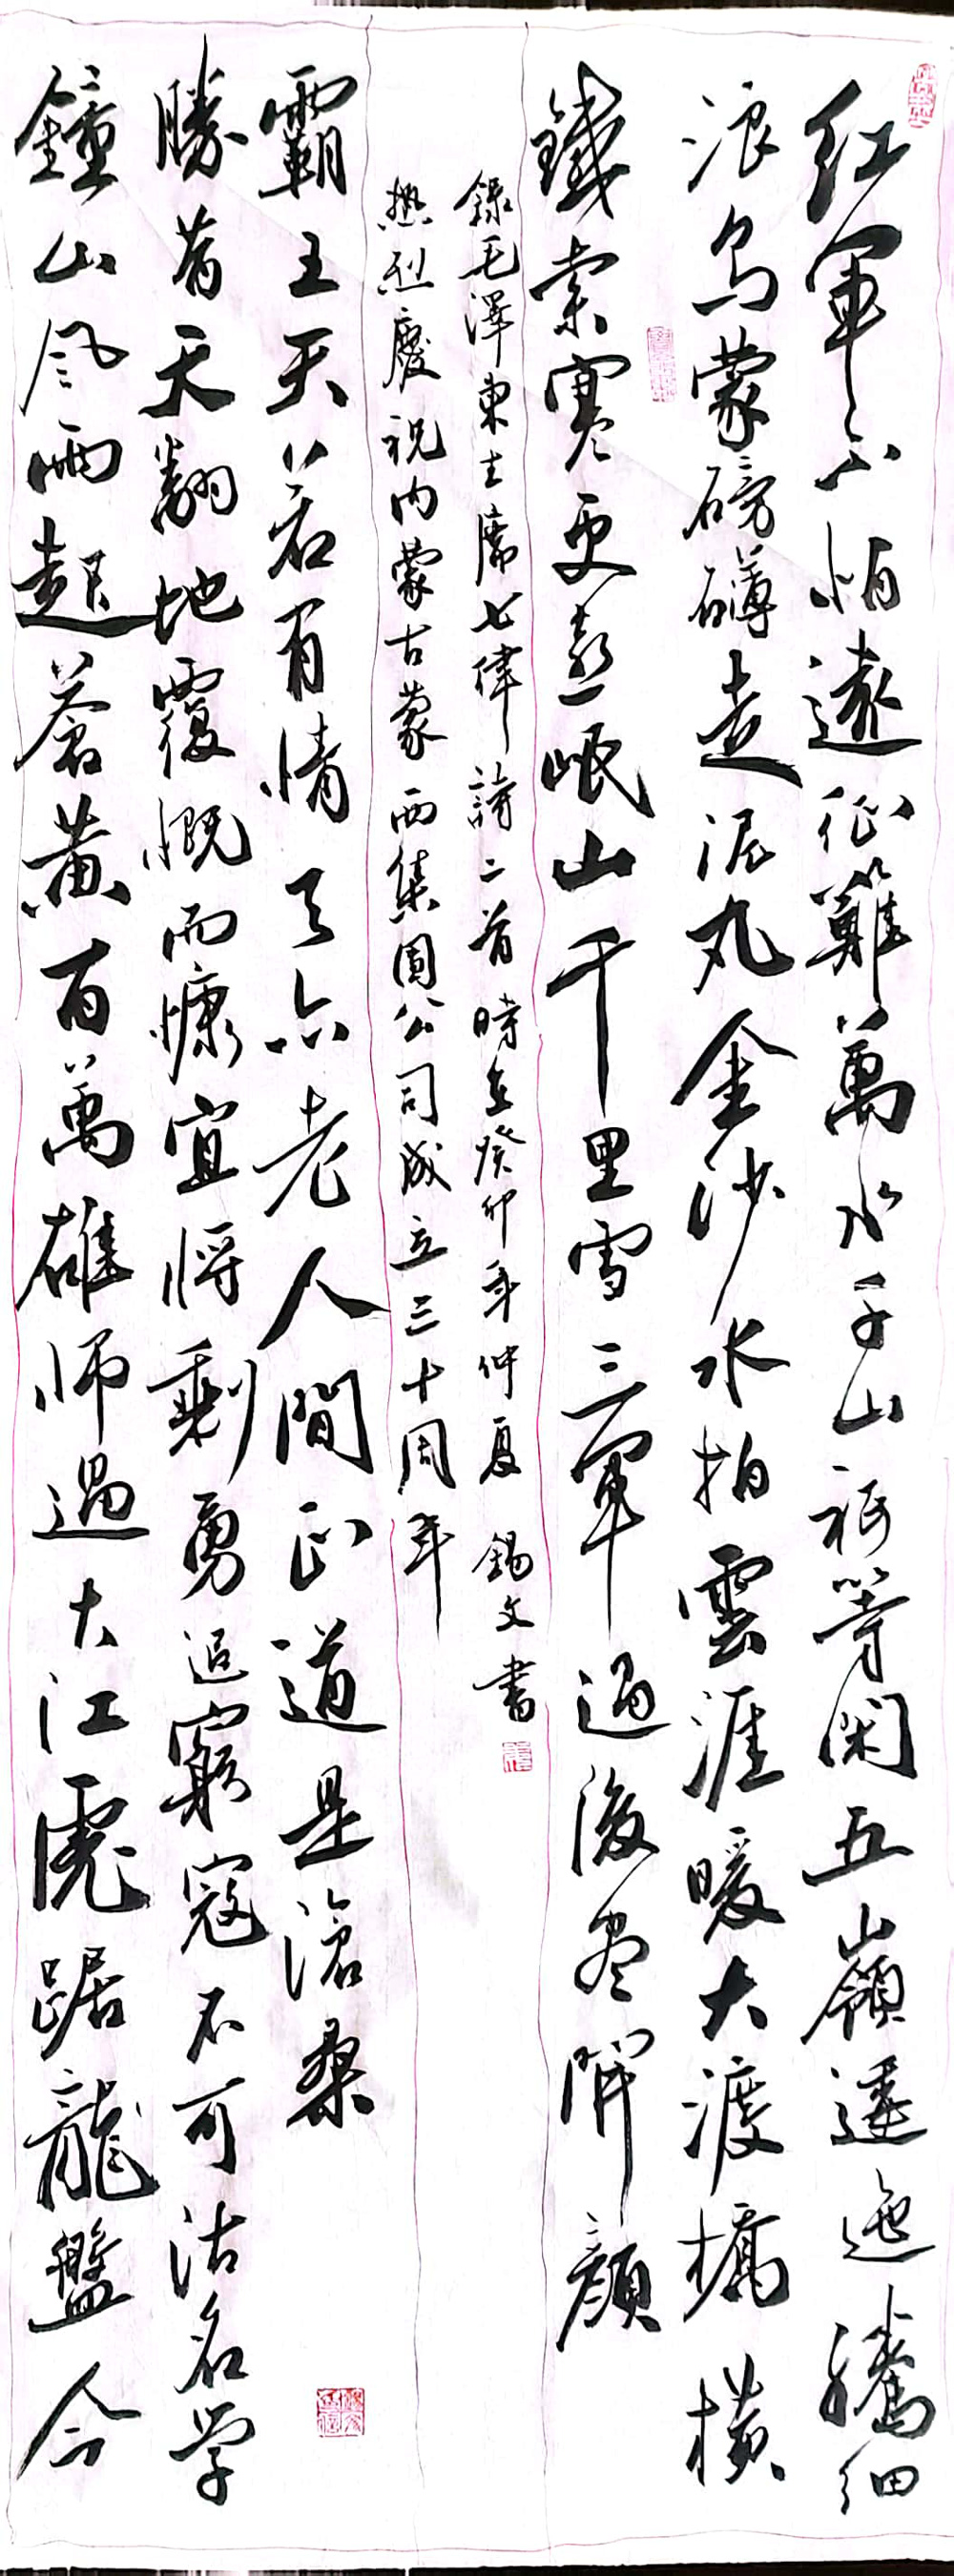 紅軍不怕遠征難萬水千山祇等閑五嶺逶迤騰細
浪烏蒙磅礴走泥丸金沙水拍雲涯暖大渡橋橫
鐵索寒更喜岷山千里雪三軍過後尽開顏
錄毛澤東主席七律詩二首 時在癸卯年仲夏 錫文書
鐘山風雨起蒼黃百萬雄師過大江虎踞龍盤今
勝昔天翻地覆慨而慷宜將剩勇追窮寇不可沽名学
霸王天若有情天亦老人間正道是滄桑
熱烈慶祝内蒙古蒙西集團公司成立三十周年